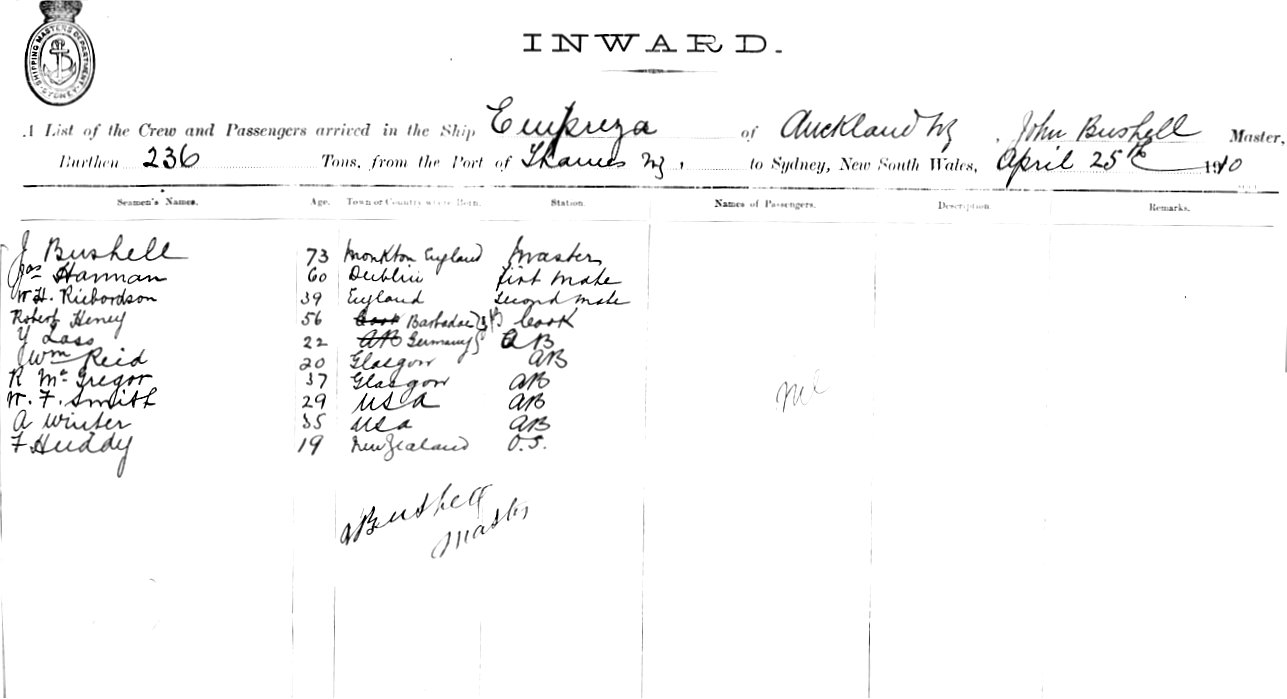 SHIPPING MASTERS DEPARTMENT SYDNEY
INWARD.
A List of the Crew and Passengers arrived in the Ship Empreza of Auckland NZ, John Bushell Master,
Burthen 236 Tons, from the Port of Thames NZ, to Sydney, New South Wales, April 25th 1910
Seamen's Names. Age. Town or Country where Born. Station. Names of Passengers. Description. Remarks.
J Bushell 73 Monkton England Master
Jas Hannan 60 Dublin first Mate
W. H. Richordson 39 England Second Mate
Robert Heney 56 Barbadae Cook
Y Lass 22 Germany AB
Wm Reid 20 Glasgow AB
R McGregor 37 Glasgow AB
W. F. Smith 29 USA AB nil
A Winter 35 USA AB
F Huddy 19 New Zealand O.S.
J Bushell
Master